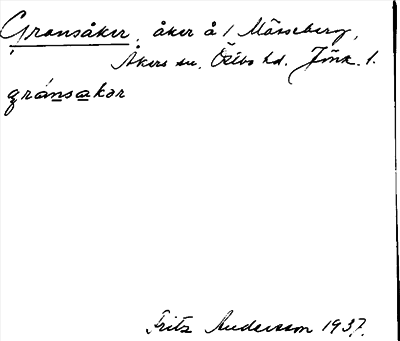 Gransåker, åker å 1 Mässeberg,
Åkers sn. Östbo hd. Jönk. l.
gránsakər
Fritz Andersson 1937.